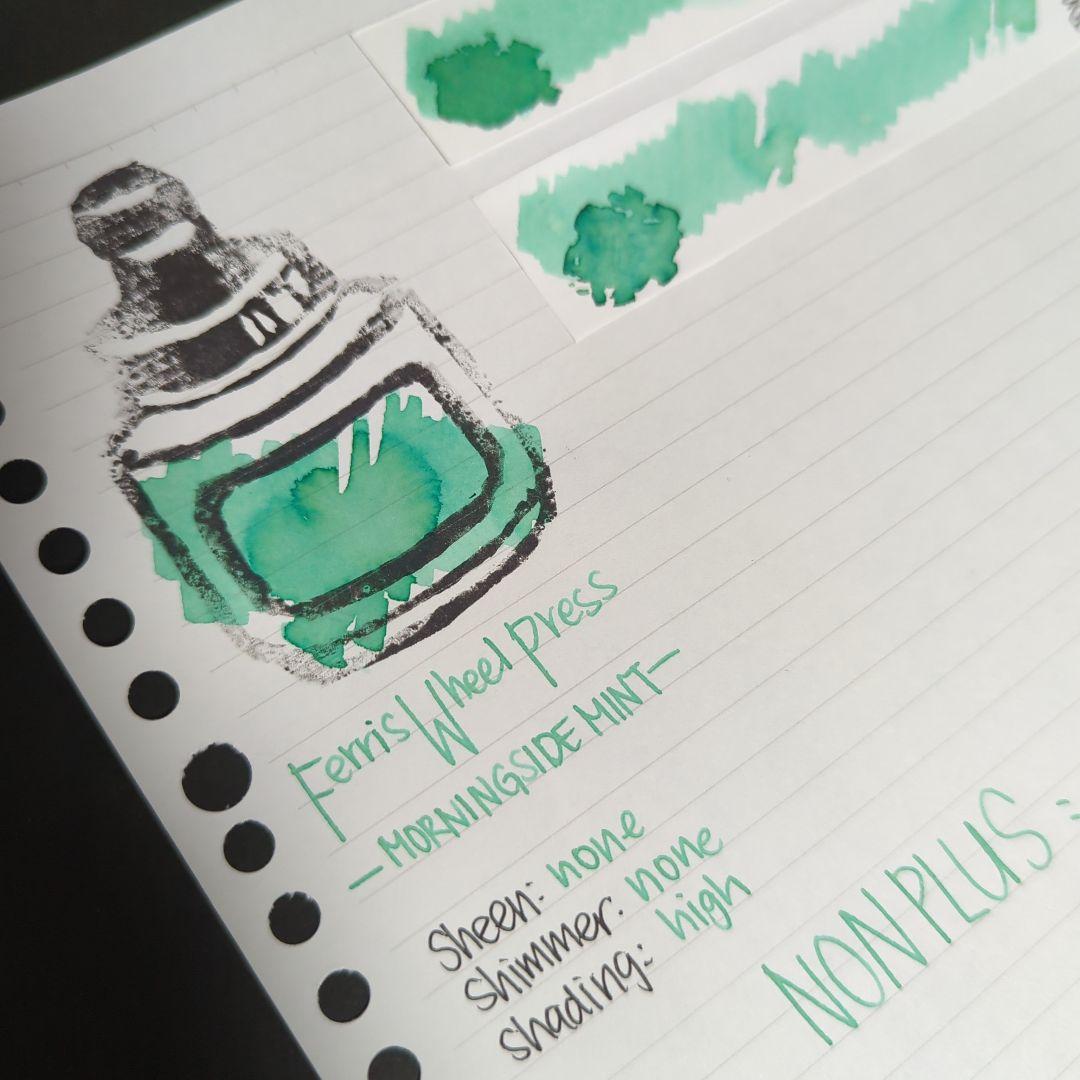 Ferris Wheel Press
—MORNINGSIDE MINT—
Sheen: none
shimmer: none
shading: high
NON PLUS